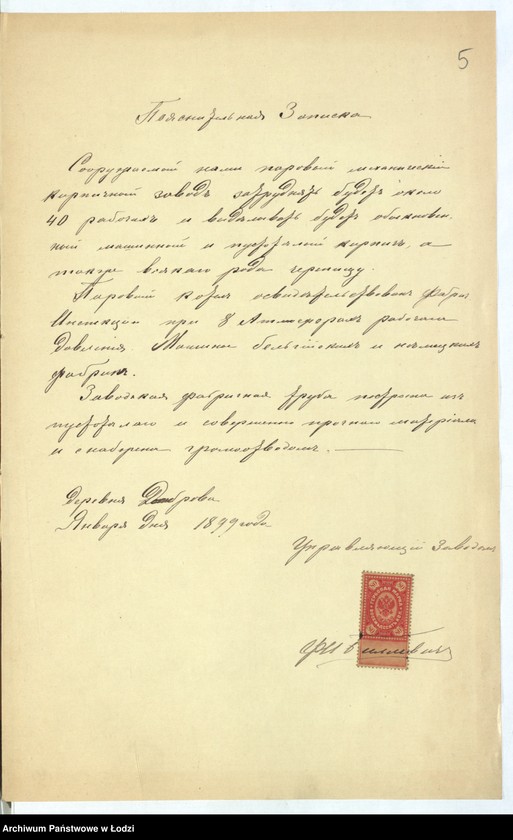 5
Пояснительная Записка
Сооружаемой нами паровый механический
кирпичный заводъ затруднять будетъ около
40 рабочихъ и выдѣлывать будетъ обыкновен.
ный машинной и пустотѣлой кирпичъ, а
также всякаго рода черепицу.
Паровой котелъ освидѣтельствованъ Фабр.
Инспекціи при 8 Атмосферахъ рабочаго
давленія. Машины бельгійскихъ и нѣмецкихъ
фабрикъ.
Заводская фабричная труба построена изъ
пустотѣлаго и совершенно прочнаго матеріала
и снабжена громоотводомъ.
деревня Домброва
Января дня 1899 года
Управляющій Заводомъ
Archiwum Państwowe w Łodzi